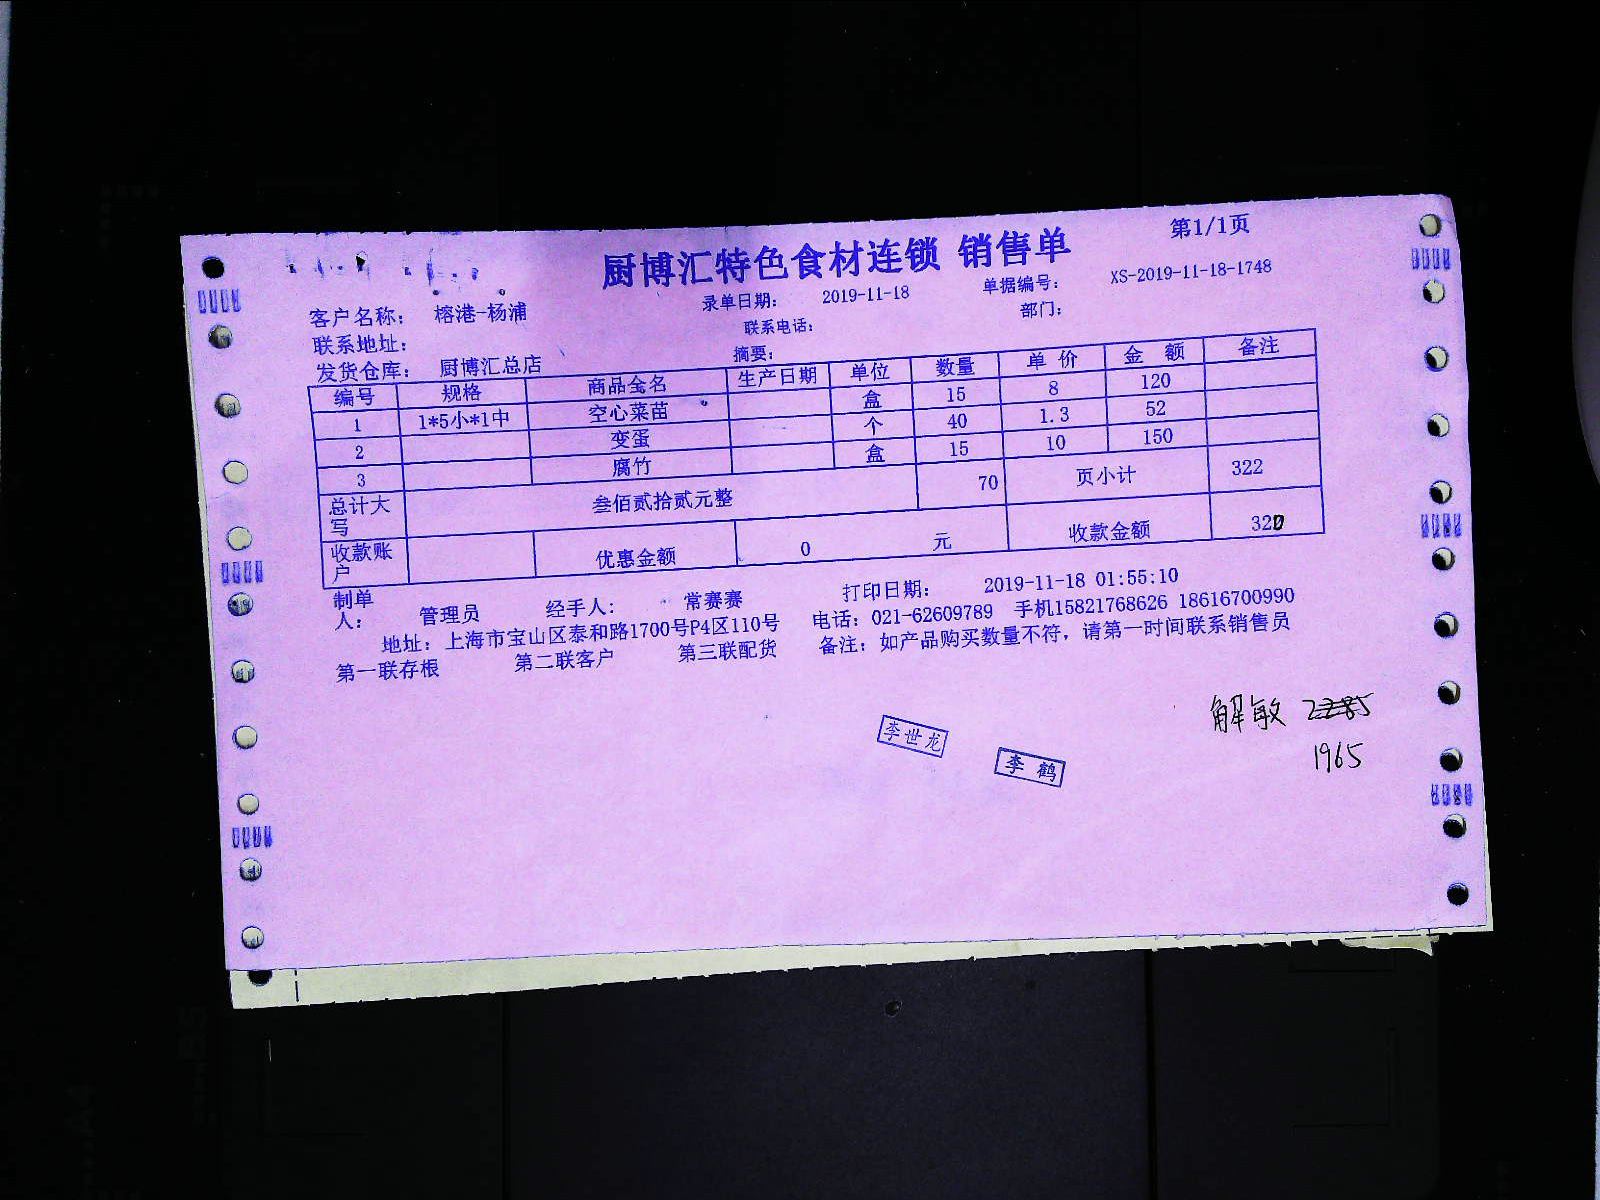 第1/1页
厨博汇特色食材连锁 销售单
录单日期: 2019-11-18 单据编号: XS-2019-11-18-1748
客户名称: 榕港-杨浦 联系电话: 部门:
联系地址: 摘要:
发货仓库: 厨博汇总店
编号 规格 商品全名 生产日期 单位 数量 单价 金额 备注
1 1*5小*1中 空心菜苗 盒 15 8 120
2 变蛋 个 40 1.3 52
3 腐竹 盒 15 10 150
总计大写 叁佰贰拾贰元整 70 页小计 322
收款账户 优惠金额 0 元 收款金额 320
制单人: 管理员 经手人: 常赛赛 打印日期: 2019-11-18 01:55:10
地址: 上海市宝山区泰和路1700号P4区110号 电话: 021-62609789 手机15821768626 18616700990
第一联存根 第二联客户 第三联配货 备注: 如产品购买数量不符, 请第一时间联系销售员
解敏
1965
李世龙
李鹤